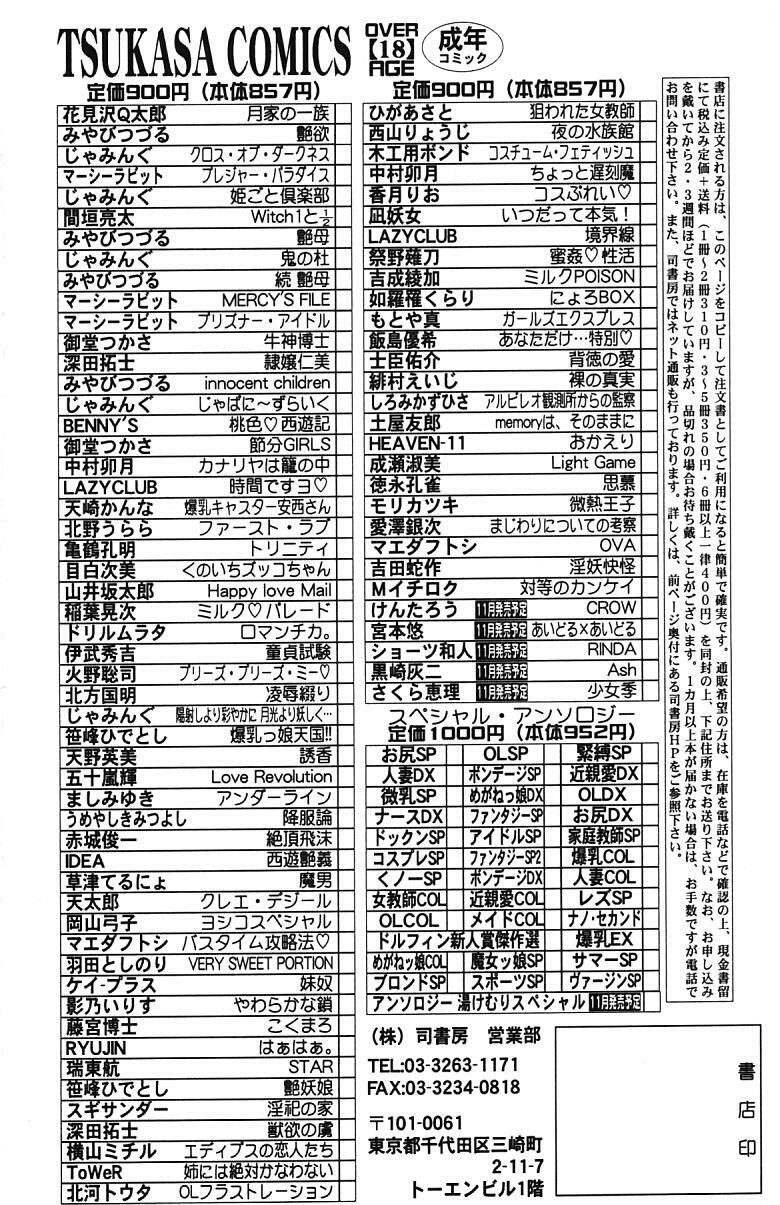 TSUKASA COMICS OVER【18】AGE 成年コミック
定価900円（本体857円）
花見沢Q太郎 月家の一族
みやびつづる 艶欲
じゃみんぐ クロス・オブ・ダークネス
マーシーラビット プレジャー・パラダイス
じゃみんぐ 姫ごと倶楽部
間垣亮太 Witch1と½
みやびつづる 艶母
じゃみんぐ 鬼の杜
みやびつづる 続 艶母
マーシーラビット MERCY'S FILE
マーシーラビット プリズナー・アイドル
御堂つかさ 牛神博士
深田拓士 隷嬢仁美
みやびつづる innocent children
じゃみんぐ じゃぱに〜ずらいく
BENNY'S 桃色♡西遊記
御堂つかさ 節分GIRLS
中村卯月 カナリヤは籠の中
LAZYCLUB 時間ですヨ♡
天崎かんな 爆乳キャスター安西さん
北野うらら ファースト・ラブ
亀鶴孔明 トリニティ
目白次美 くのいちズッコちゃん
山井坂太郎 Happy love Mail
稲葉晃次 ミルク♡パレード
ドリルムラタ ロマンチカ。
伊武秀吉 童貞試験
火野聡司 プリーズ・プリーズ・ミー♡
北方国明 凌辱綴り
じゃみんぐ 陽射しより彩やかに 月光より妖しく…
笹峰ひでとし 爆乳っ娘天国!!
天野英美 誘香
五十嵐輝 Love Revolution
ましみゆき アンダーライン
うめやしきみつよし 降服論
赤城俊一 絶頂飛沫
IDEA 西遊艶義
草津てるにょ 魔男
天太郎 クレエ・デジール
岡山弓子 ヨシコスペシャル
マエダフトシ バスタイム攻略法♡
羽田としのり VERY SWEET PORTION
ケイ・プラス 妹奴
影乃いりす やわらかな鎖
藤宮博士 こくまろ
RYUJIN はぁはぁ。
瑞東航 STAR
笹峰ひでとし 艶妖娘
スギサンダー 淫祀の家
深田拓士 獣欲の虜
横山ミチル エディプスの恋人たち
ToWeR 姉には絶対かなわない
北河トウタ OLフラストレーション
定価900円（本体857円）
ひがあさと 狙われた女教師
西山りょうじ 夜の水族館
木工用ボンド コスチューム・フェティッシュ
中村卯月 ちょっと遅刻魔
香月りお コスぷれい♡
凪妖女 いつだって本気！
LAZYCLUB 境界線
祭野薙刀 蜜姦♡性活
吉成綾加 ミルクPOISON
如羅罹くらり にょろBOX
もとや真 ガールズエクスプレス
飯島優希 あなただけ…特別♡
士臣佑介 背徳の愛
緋村えいじ 裸の真実
しろみかずひさ アルビレオ観測所からの監察
土屋友郎 memoryは、そのままに
HEAVEN-11 おかえり
成瀬淑美 Light Game
徳永孔雀 思慕
モリカツキ 微熱王子
愛澤銀次 まじわりについての考察
マエダフトシ OVA
吉田蛇作 淫妖快怪
Mイチロク 対等のカンケイ
けんたろう 11月発売予定 CROW
宮本悠 11月発売予定 あいどる×あいどる
ショーツ和人 11月発売予定 RINDA
黒崎灰二 11月発売予定 Ash
さくら恵理 11月発売予定 少女季
スペシャル・アンソロジー
定価1000円（本体952円）
お尻SP OLSP 緊縛SP
人妻DX ボンデージSP 近親愛DX
微乳SP めがねっ娘DX OLDX
ナースDX ファンタジーSP お尻DX
ドックンSP アイドルSP 家庭教師SP
コスプレSP ファンタジーSP2 爆乳COL
くノーSP ボンデージDX 人妻COL
女教師COL 近親愛COL レズSP
OLCOL メイドCOL ナノ・セカンド
ドルフィン新人賞傑作選 爆乳EX
めがねッ娘COL 魔女ッ娘SP サマーSP
ブロンドSP スポーツSP ヴァージンSP
アンソロジー 湯けむりスペシャル 11月発売予定
書店に注文される方は、このページをコピーして注文書としてご利用になると簡単で確実です。通販希望の方は、在庫を電話などで確認の上、現金書留
にて税込み定価＋送料（1冊〜2冊310円・3〜5冊350円・6冊以上一律400円）を同封の上、下記住所までお送り下さい。なお、お申し込み
を戴いてから2・3週間ほどでお届けしていますが、品切れの場合お待ち戴くことがございます。1カ月以上本が届かない場合は、お手数ですが電話で
お問い合わせ下さい。また、司書房ではネット通販も行っております。詳しくは、前ページ奥付にある司書房HPをご参照下さい。
（株）司書房 営業部
TEL:03-3263-1171
FAX:03-3234-0818
〒101-0061
東京都千代田区三崎町
2-11-7
トーエンビル1階
書店印